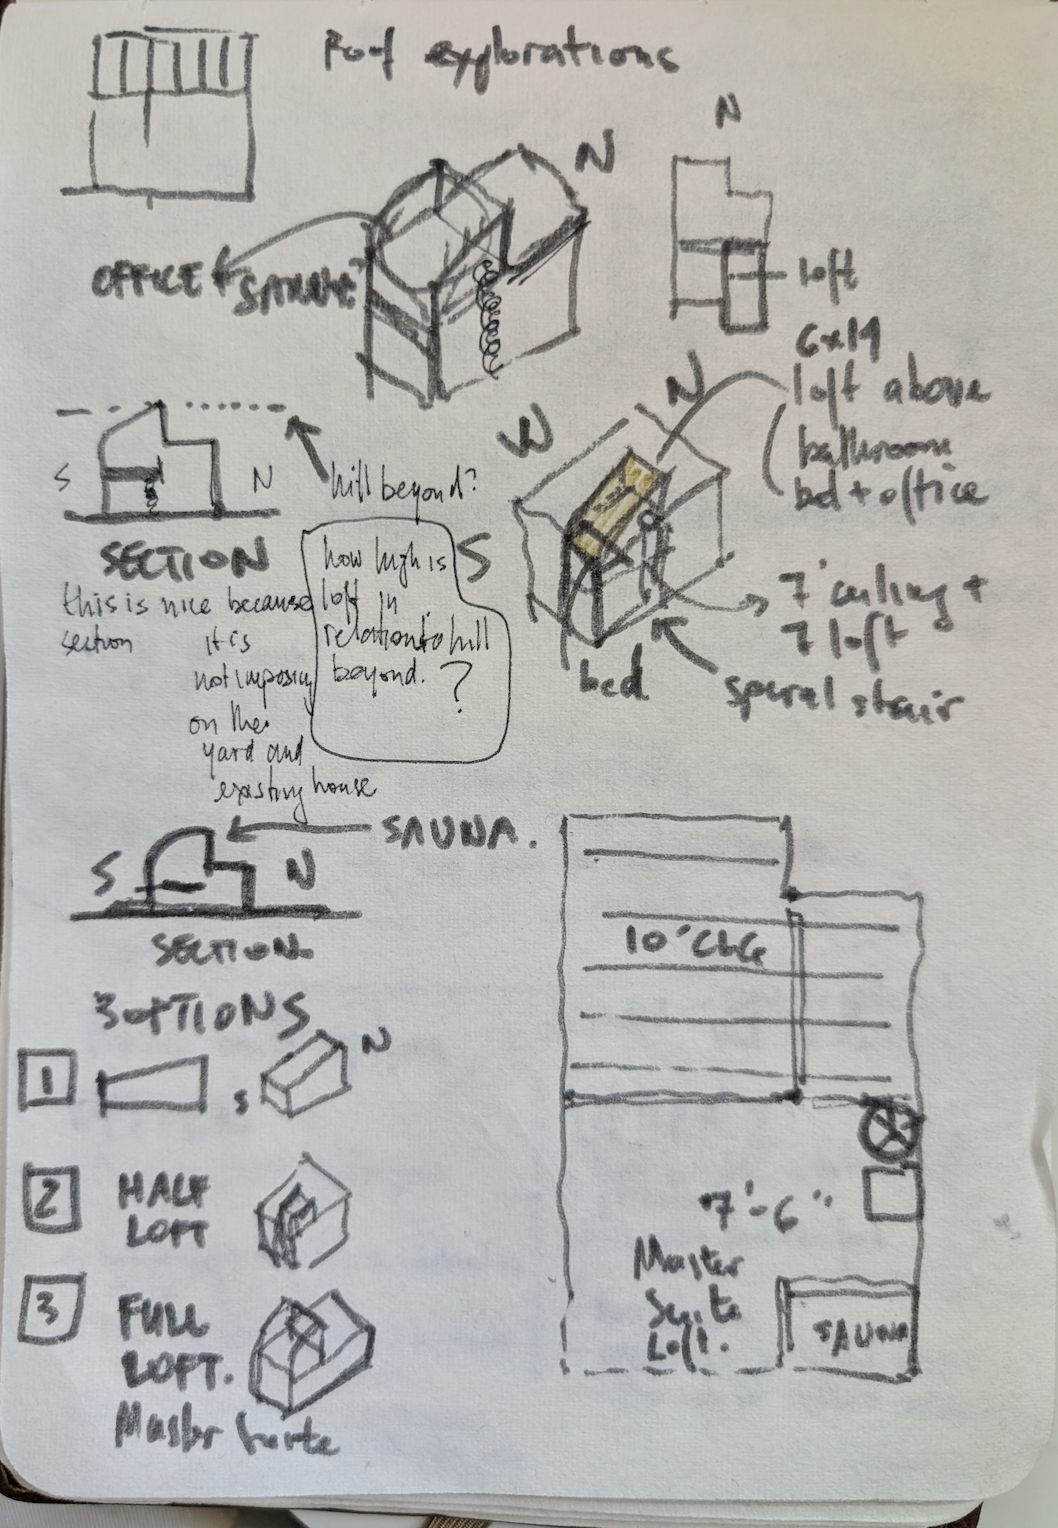 Roof explorations
N
N
OFFICE + SAUNA?
loft
6x19
loft above
bathroom
bed + office
W
N
S
N
hill beyond?
SECTION
this is nice because
section it is
not imposing
on the
yard and
existing house
how high is
loft in
relation to hill
beyond.
?
S
7' ceiling +
7 loft
bed
spiral stair
SAUNA.
S
N
SECTION.
10' CLG
3 OPTIONS
1
S
N
2
HALF
LOFT
7'-6"
Master
Suite
Loft.
SAUNA
3
FULL
LOFT.
Master Suite